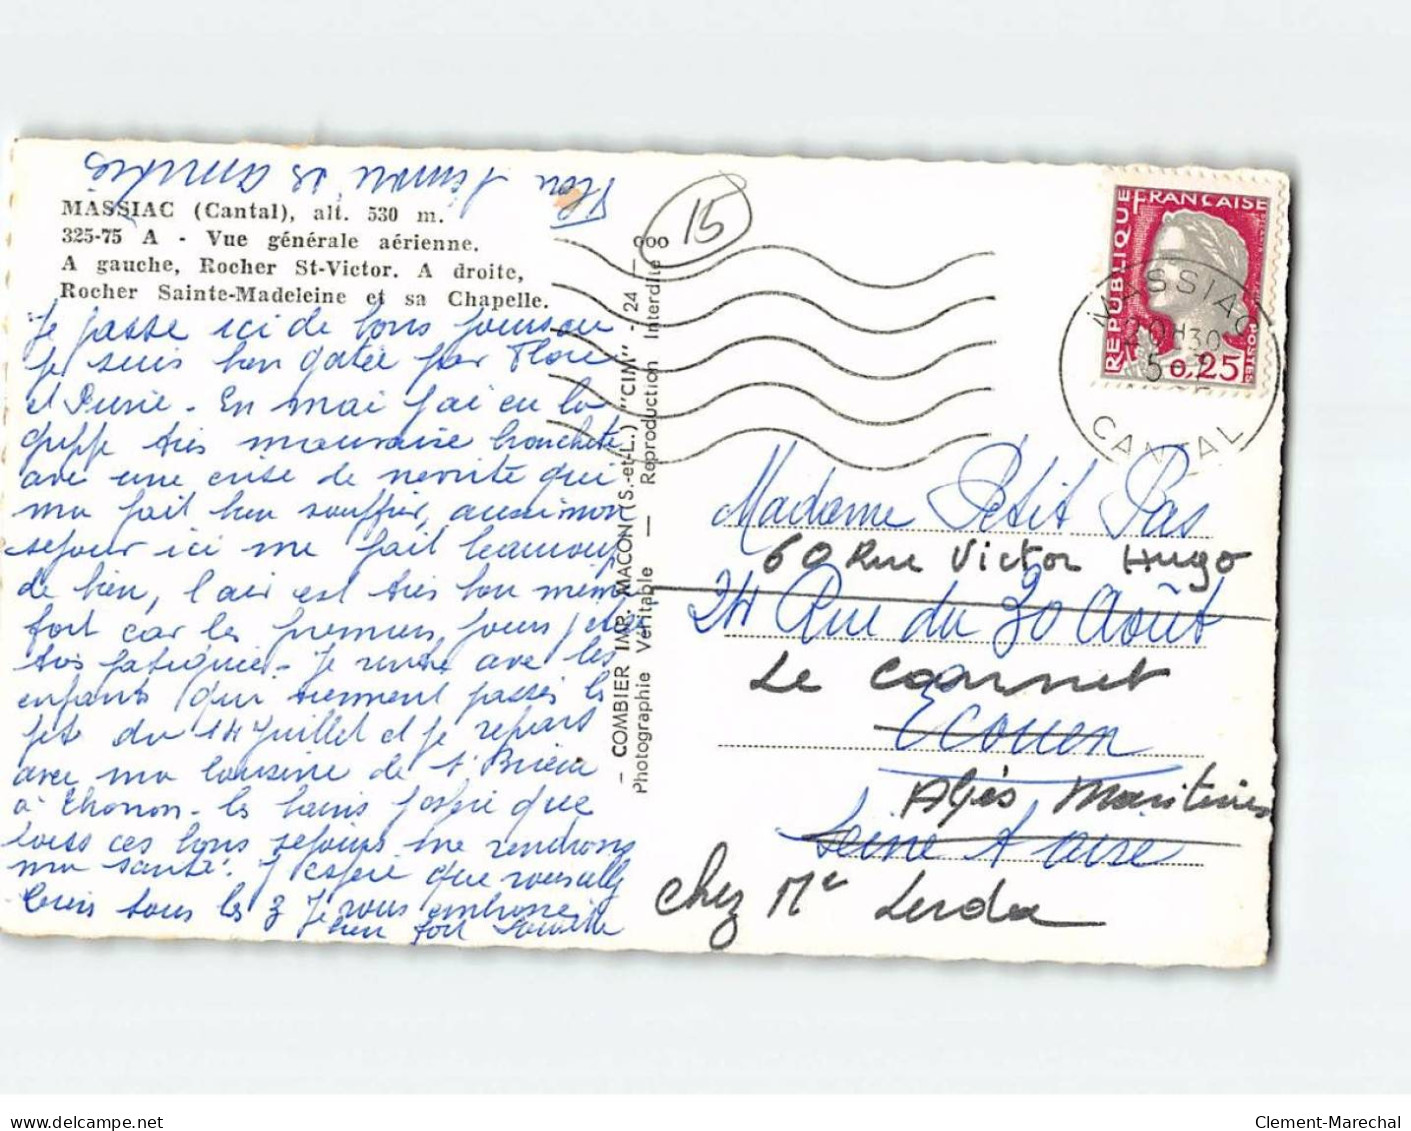 MASSIAC (Cantal), alt. 530 m.
325-75 A - Vue générale aérienne.
A gauche, Rocher St-Victor. A droite,
Rocher Sainte-Madeleine et sa Chapelle.
Je passe ici de bons jours ou
je suis bien gatée par Flore
et . En mai j'ai eu la
grippe très mauvaise bronchite
avec une crise de nevrite qui
ma fait bien souffrir, aussi mon
sejour ici me fait beaucoup
de bien, l'air est très bon meme
fort car les premiers jours j'etais
très fatiguée. Je rentre avec les
enfants qui viennent passés la
fete du 14 Juillet et je repars
avec ma cousine de St Brieuc
à Thonon les bains j'espere que
tous ces bons sejours me rendrons
ma santé. J'espere que vous allez
bien tous les 3 Je vous embrasse
bien fort
amitiés
- COMBIER IMP. MACON (S.-et-L.) "CIM" - 24 -
Photographie Véritable — Reproduction Interdite
15
RÉPUBLIQUE FRANÇAISE
POSTES
0,25
MASSIAC
20H30
5
CANTAL
Madame Petit Pas
60 Rue Victor Hugo
24 Rue du 30 Août
Le Cannet
Ecouen
Alpes Maritimes
Seine et Oise
chez Me